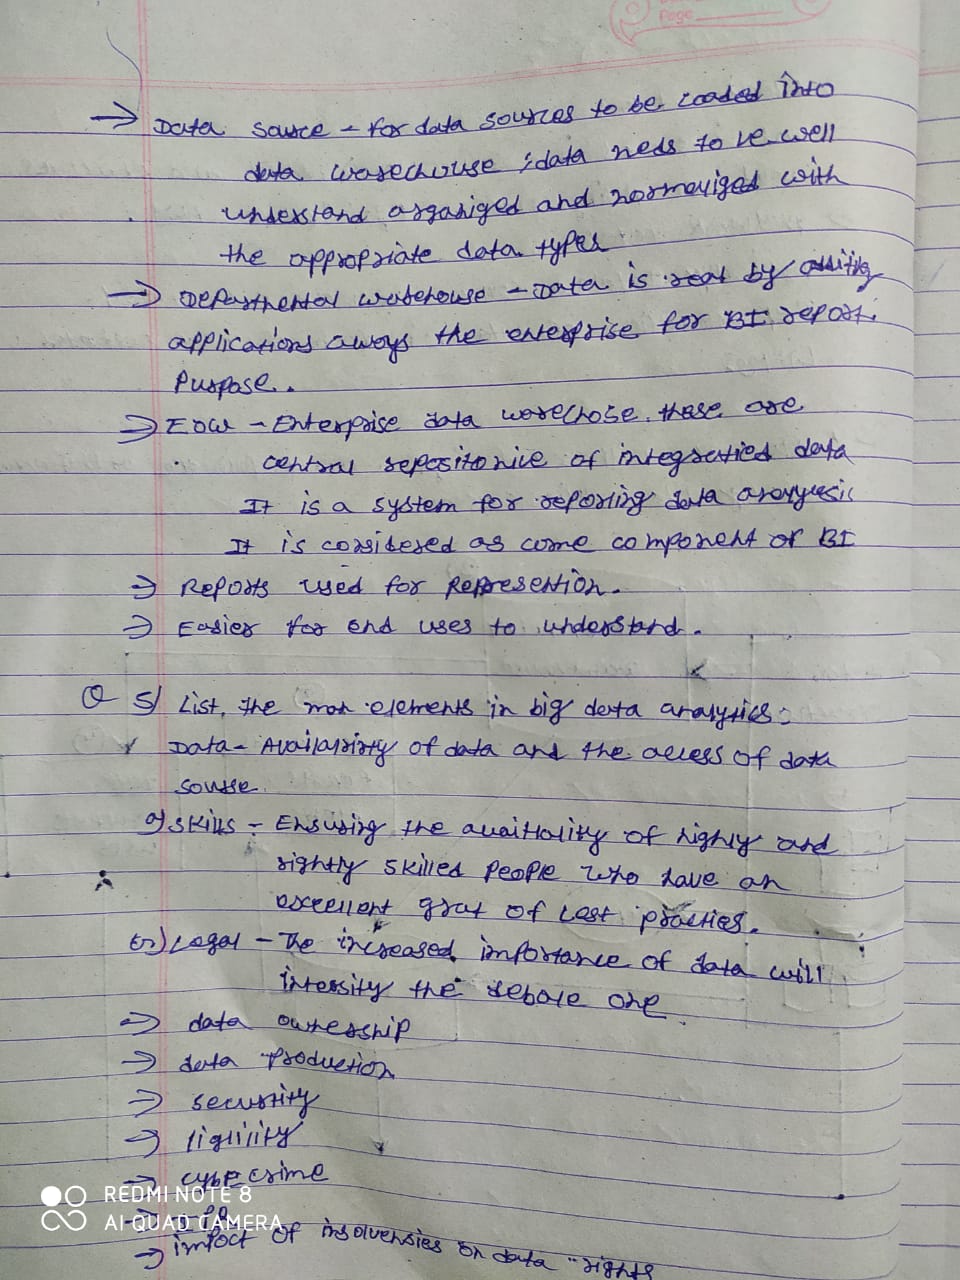 Page
→ Data source - for data sources to be loaded into
data warechouse ; data neds to be well
understand organiged and normaliged with
the appropriate data types
→ Departmental warehouse - Data is reat by
applications aways the enterprise for BI report.
Purpose..
⇒ EDW - Enterprise data warechose. these are
central repositorice of integratied data
It is a system for reporting data
It is considered as come component of BI
⇒ Reports used for Represention.
⇒ Easier for end uses to understand.
Q 5) List, the elements in big data analytics:
Data - Availability of data and the access of data
sourse.
skills - Ensuring the avaitlolity of highly and
rightly skilled people who have an
excellent of practies.
Legal - The increased importance of data will
intessity the debate one
→ data ownership
→ data production
→ security
→ ligility
→ cybecrime
→
→ impact of insolvensies on data rights
REDMI NOTE 8
AI QUAD CAMERA